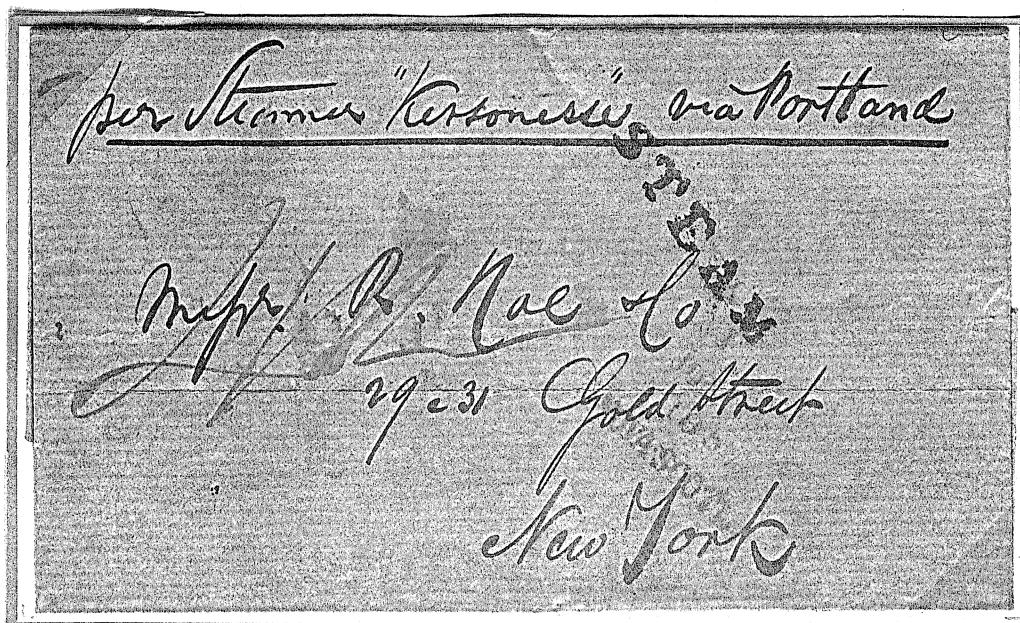 per Steamer "Kersonesse" via Portland
Messrs. R. Noe & Co
29-31 Gold Street
New York